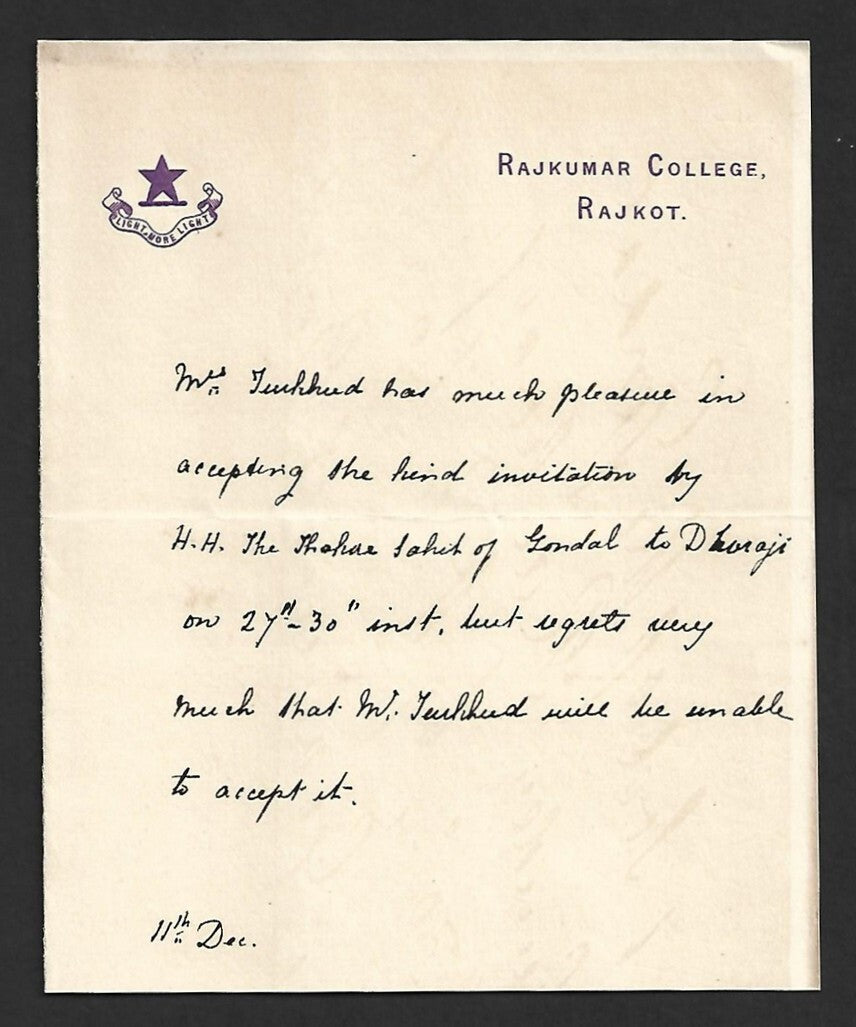 LIGHT, MORE LIGHT
RAJKUMAR COLLEGE,
RAJKOT.
Mrs Turkhud has much pleasure in
accepting the kind invitation by
H.H. The Thakore Sahib of Gondal to Dhoraji
on 27th–30th inst, but regrets very
much that Mr. Turkhud will be unable
to accept it.
11th Dec.